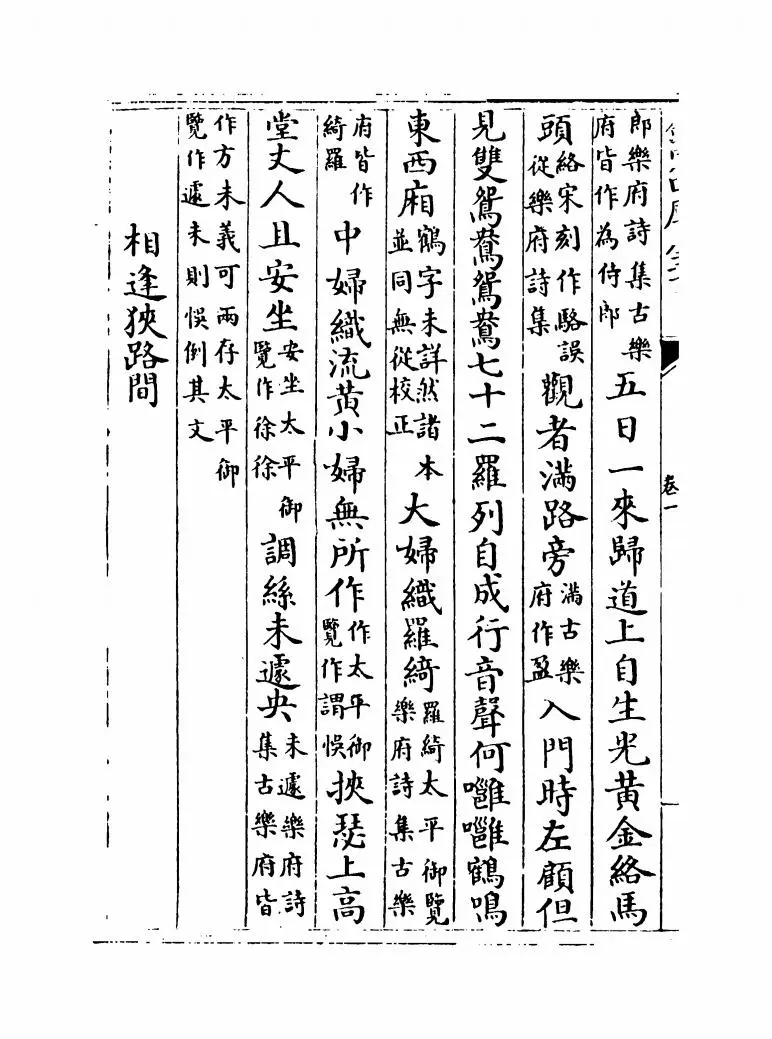 郎樂府詩集古樂府皆作為侍郎五日一來歸道上自生光黃金絡馬
頭絡宋刻作駱誤從樂府詩集觀者滿路旁滿古樂府作盈入門時左顧但
見雙鴛鴦鴛鴦七十二羅列自成行音聲何噰噰鶴鳴
東西廂鶴字未詳然諸本並同無從校正大婦織羅綺羅綺太平御覽樂府詩集古樂
府皆作綺羅中婦織流黃小婦無所作作太平御覽作謂悞挾瑟上高
堂丈人且安坐安坐太平御覽作徐徐調絲未遽央未遽樂府詩集古樂府皆
作方未義可兩存太平御覽作遽未則悞倒其文
相逢狹路間
卷一